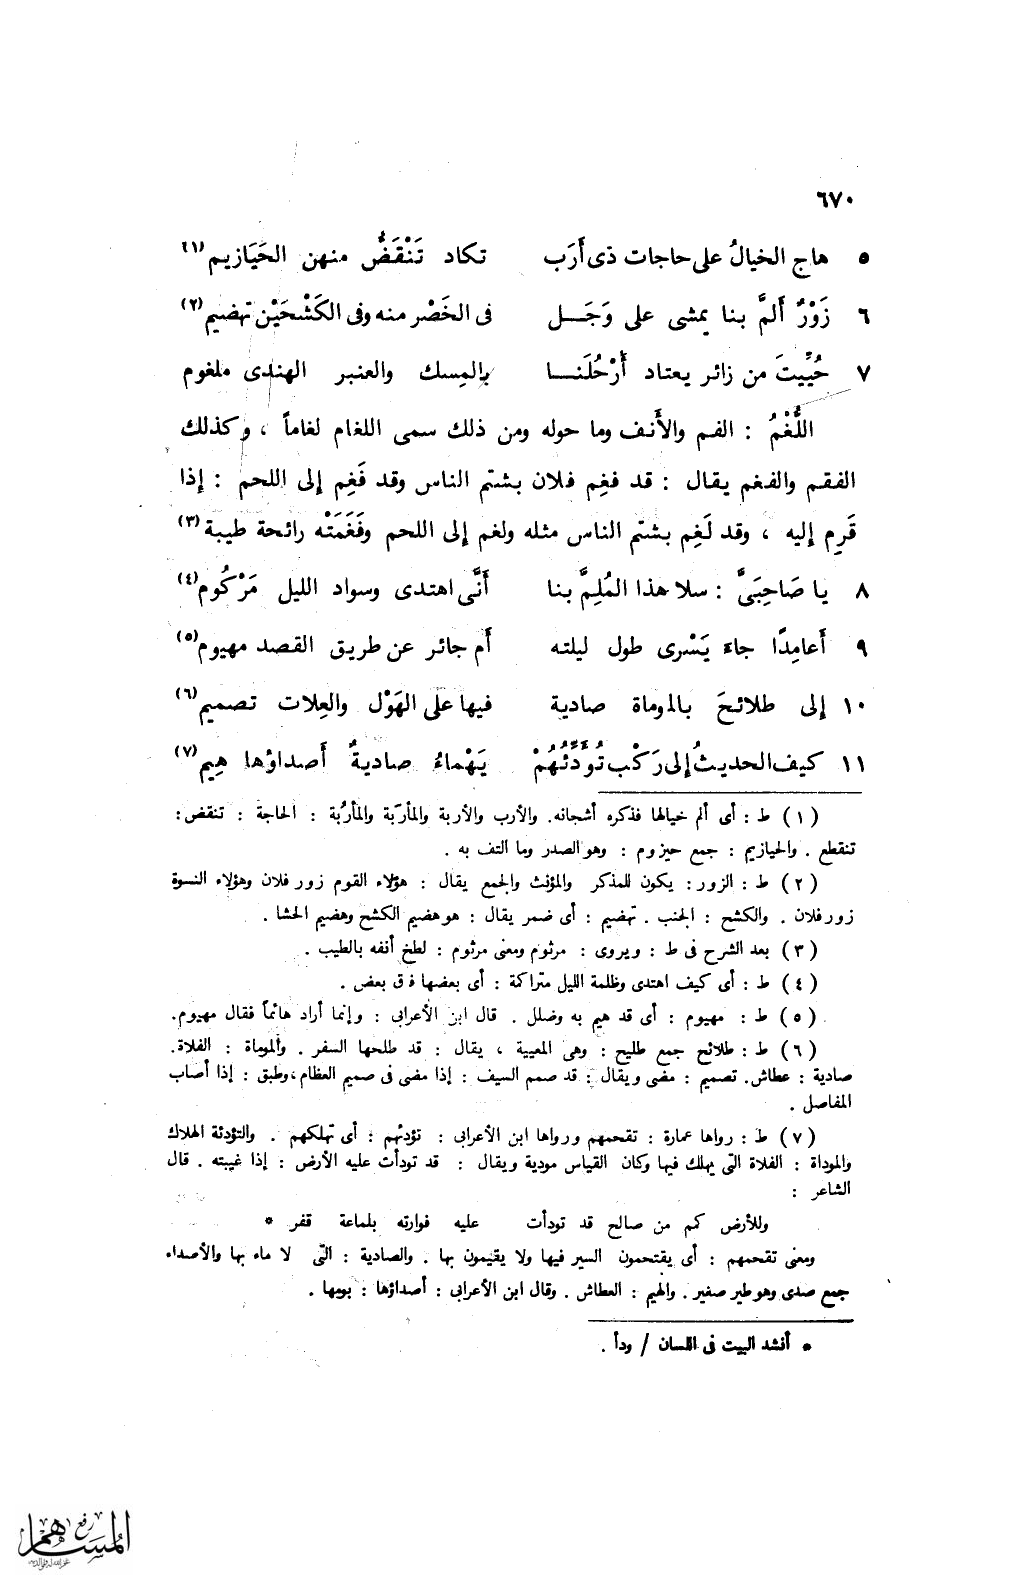 ٦٧٠
٥ هاج الخيالُ على حاجات ذى أَرَب تكاد تَنْقَضُّ منهن الحَيَازيم (١)
٦ زَوْرٌ أَلمَّ بنا يمشى على وَجَـــل فى الخَصْر منه وفى الكَشْحَيْن تهضيم (٢)
٧ حُيِّيتَ من زائر يعتاد أَرْحُلَنـــا بالمِسك والعنبر الهندى ملغوم
اللُّغْمُ : الفم والأَنف وما حوله ومن ذلك سمى اللغام لغاماً ، وكذلك
الفقم والفغم يقال : قد فغِم فلان بشتم الناس وقد فَغِم إلى اللحم : إذا
قَرِم إليه ، وقد لَغِم بشتم الناس مثله ولغم إلى اللحم وفَغَمَتْه رائحة طيبة (٣)
٨ يا صَاحِبَىَّ : سلا هذا المُلِمَّ بنا أَنَّى اهتدى وسواد الليل مَرْكُوم (٤)
٩ أَعامِدًا جاءَ يَسْرى طول ليلته أَم جائر عن طريق القصد مهيوم (٥)
١٠ إلى طلائحَ بالموماة صادية فيها على الهَوْل والعِلات تصميم (٦)
١١ كيف الحديثُ إلى رَكْب تُوَدِّئُهُمْ يَهْماءُ صاديةٌ أَصداؤها هِيم (٧)
(١) ط : أى ألم خيالها فذكره أشجانه. والأرب والأربة والمأرَبة والمأرُبة : الحاجة : تنقض :
تنقطع . والحيازيم : جمع حيزوم : وهو الصدر وما التف به .
(٢) ط : الزور : يكون للمذكر والمؤنث والجمع يقال : هؤلاء القوم زور فلان وهؤلاء النسوة
زور فلان . والكشح : الجنب . تهضيم : أى ضمر يقال : هو هضيم الكشح وهضيم الحشا .
(٣) بعد الشرح فى ط : ويروى : مرثوم ومعنى مرثوم : لطخ أنفه بالطيب .
(٤) ط : أى كيف اهتدى وظلمة الليل متراكمة : أى بعضها فوق بعض .
(٥) ط : مهيوم : أى قد هيم به وضلل . قال ابن الأعرابى : وإنما أراد هائماً فقال مهيوم.
(٦) ط : طلائح جمع طليح : وهى المعيية ، يقال : قد طلحها السفر . والموماة : الفلاة.
صادية : عطاش. تصميم : مضى ويقال : قد صمم السيف : إذا مضى فى صميم العظام، وطبق : إذا أصاب
المفاصل .
(٧) ط : رواها عمارة : تقحمهم ورواها ابن الأعرابى : تودئهم : أى تهلكهم . والتودئة الهلاك
والموداة : الفلاة التى يهلك فيها وكان القياس مودية ويقال : قد تودأت عليه الأرض : إذا غيبته . قال
الشاعر :
وللأرض كم من صالح قد تودأت عليه فوارته بلماعة قفر *
ومعنى تقحمهم : أى يقتحمون السير فيها ولا يقيمون بها . والصادية : التى لا ماء بها والأصداء
جمع صدى وهو طير صفير . والهيم : العطاش . وقال ابن الأعرابى : أصداؤها : بومها .
* أنشد البيت فى اللسان / ودأ .